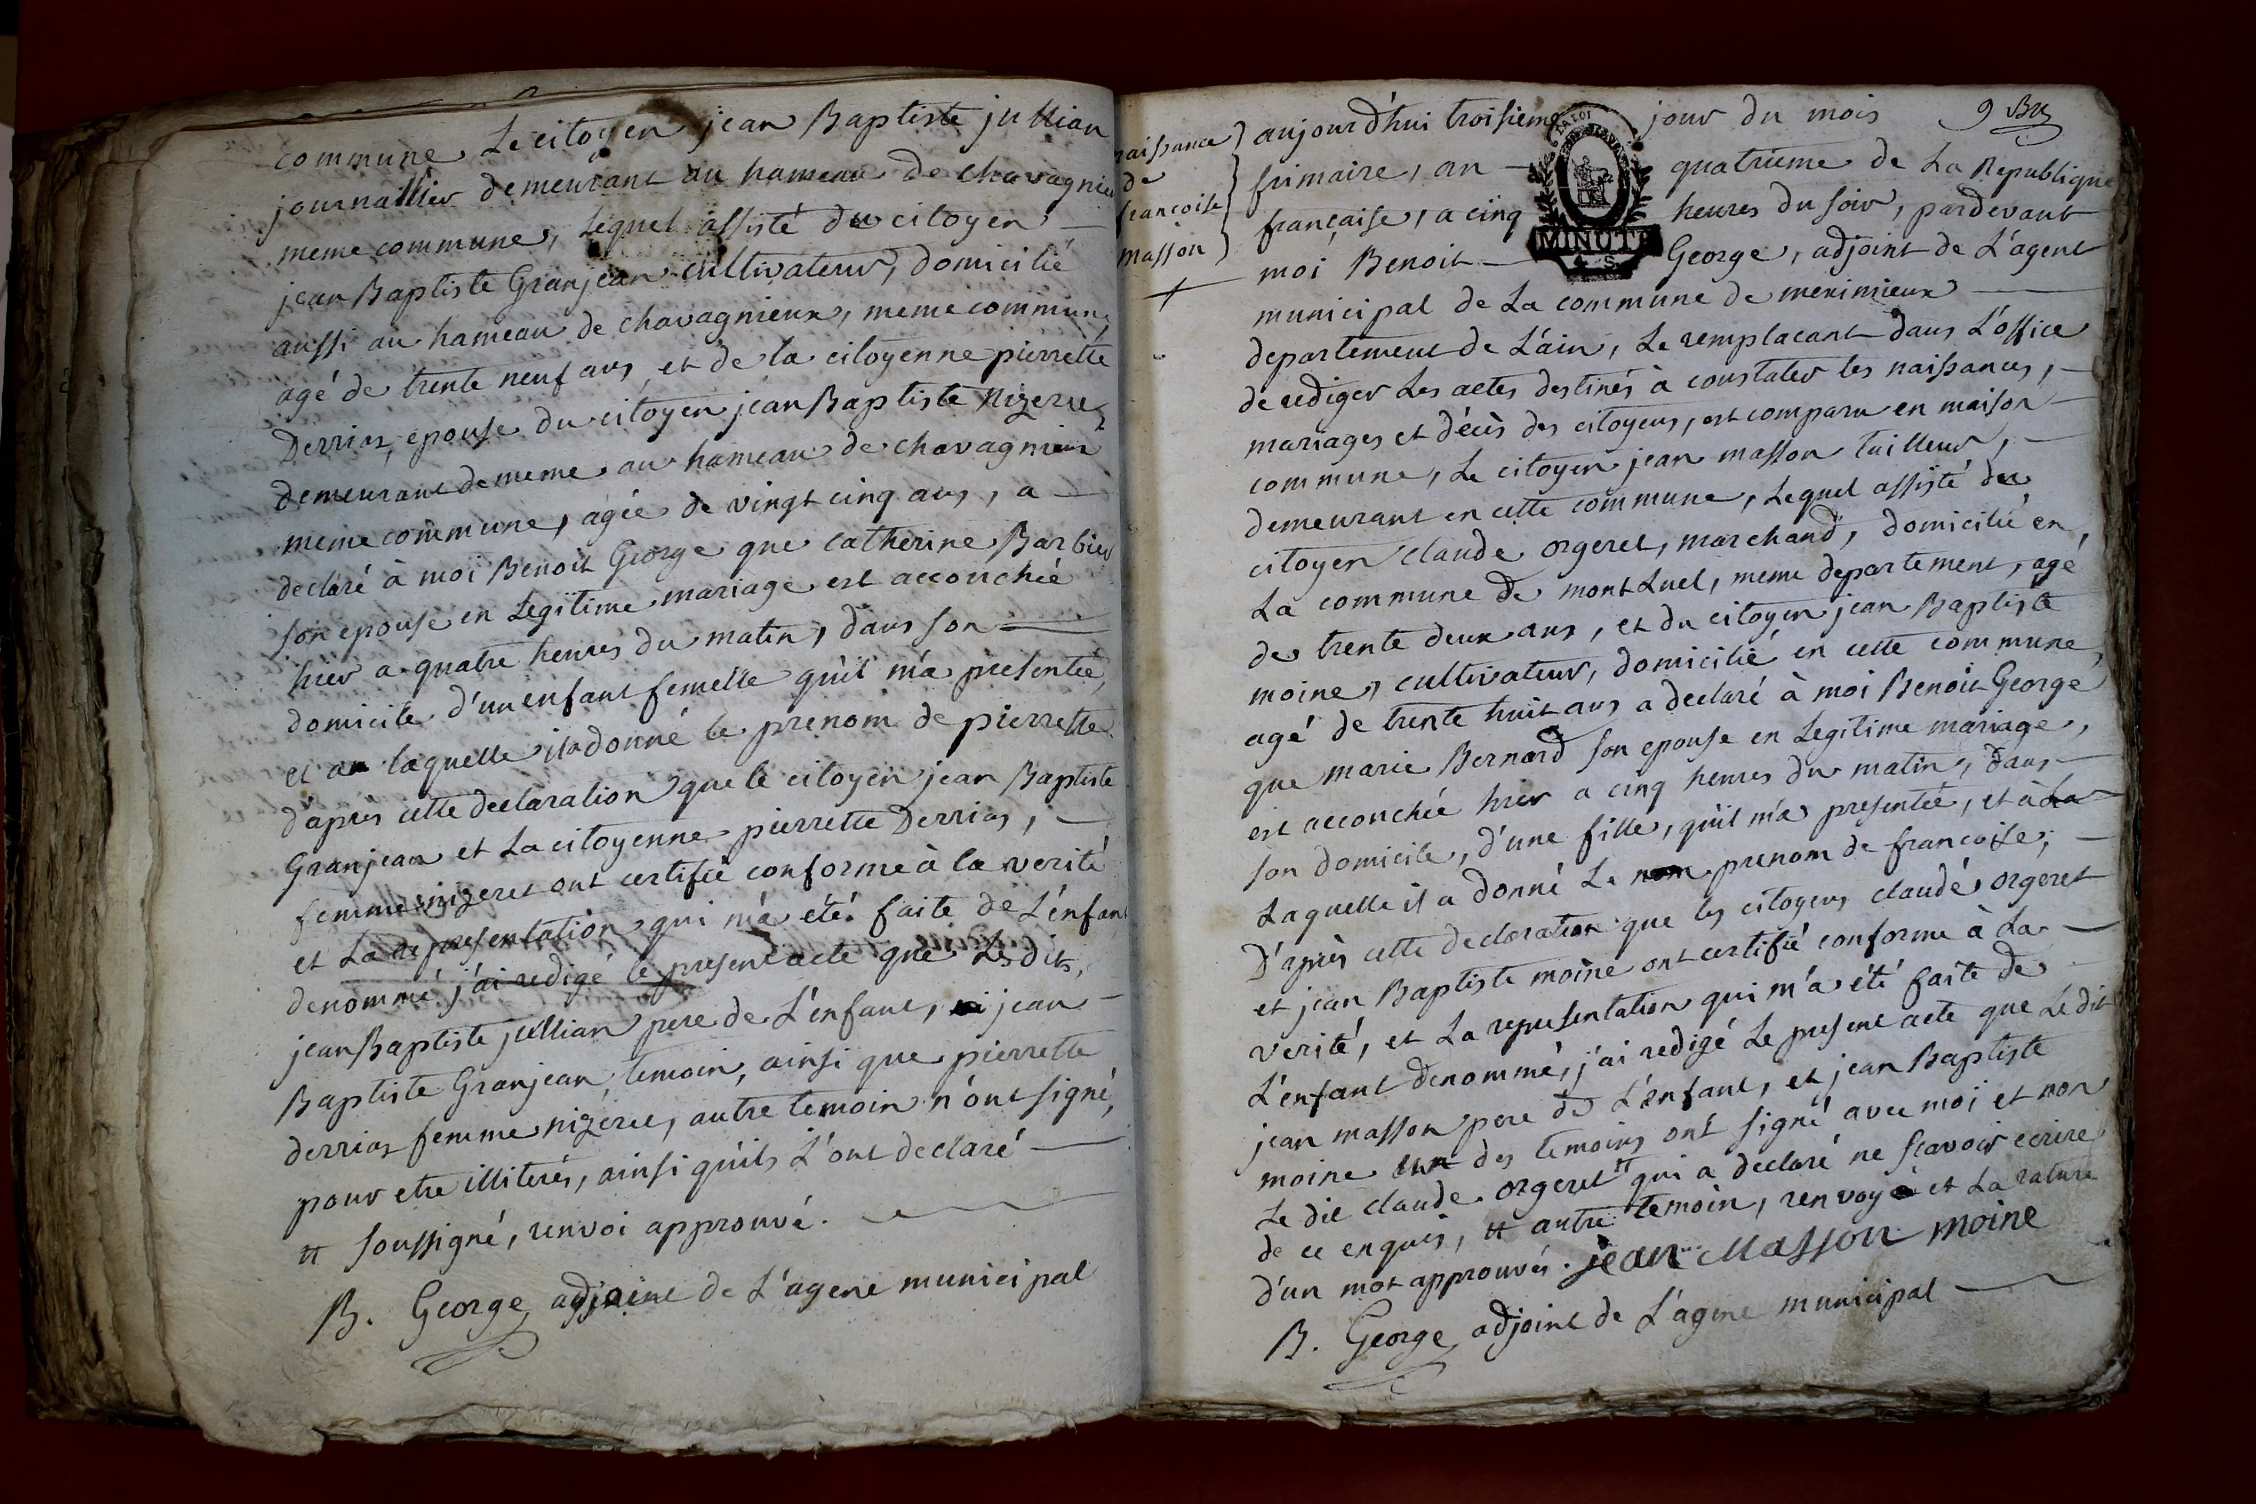 commune, Le citoyen jean Baptiste jullian
journallier demeurant au hameau de chavagnieu
meme commune, Lequel assisté du citoyen
jean Baptiste Granjean cultivateur, domicilié
aussi au hameau de chavagnieux, meme commune,
agé de trente neuf ans, et de la citoyenne pierrette
Derrias, epouse du citoyen jean Baptiste Nizeret
demeurant de meme au hameau de chavagnieux
meme commune, agée de vingt cinq ans, a
declaré à moi Benoit George que catherine Barbier
son epouse en Legitime mariage est accouchée
hier a quatre heures du matin, dans son
domicile d'un enfant femelle qu'il m'a presentée,
et a laquelle il a donné le prenom de pierrette.
d'aprés cette declaration que le citoyen jean Baptiste
Granjean et La citoyenne pierrette Derrias,
femme nizeret ont certifiée conforme à la verité
et La representation qui m'a été faite de L'enfant
denommé j'ai redigé le present acte que Lesdits
jean Baptiste jullian pere de L'enfant, jean
Baptiste Granjean, temoin, ainsi que pierrette
derrias femme nizeret, autre temoin n'ont signé,
pour etre illiterés, ainsi qu'ils L'ont declaré
# soussigné, renvoi approuvé.
B. George adjoint de L'agent municipal
naissance
de
francoise
masson
9 Bre
aujourd'hui troisieme jour du mois
frimaire, an quatrieme de La Republique
française, a cinq heures du soir, pardevant
moi Benoit George, adjoint de L'agent
LA LOI
MINUTE
4 S.
municipal de La commune de meximieux
departement de L'ain, Le remplacant dans L'office
de rediger Les actes destinés à constater les naissances,
mariages et décès des citoyens, est comparu en maison
commune, Le citoyen jean masson tailleur,
demeurant en cette commune, Lequel assisté du
citoyen claude orgeret, marchand, domicilié en
La commune de mont Luel, meme departement, agé
de trente deux ans, et du citoyen jean Baptiste
moine, cultivateur, domicilié en cette commune,
agé de trente huit ans a declaré à moi Benoit George
que marie Bernard son epouse en Legitime mariage,
est accouchée hier a cinq heures du matin, dans
son domicile, d'une fille, qu'il m'a presentée, et à La
Laquelle il a donné Le nom prenom de francoise;
D'après cette declaration que les citoyens claude orgeret
et jean Baptiste moine ont certifié conforme à La
verité, et La representation qui m'a été faite de
L'enfant denommé, j'ai redigé Le present acte que Ledit
jean masson pere de L'enfant, et jean Baptiste
moine un des temoins ont signé avec moi et non
Le dit claude orgeret # qui a declaré ne scavoir ecrire
de ce enquis, # autre temoin, renvoy et La rature
d'un mot approuvés. jean Masson moine
B. George adjoint de L'agent municipal